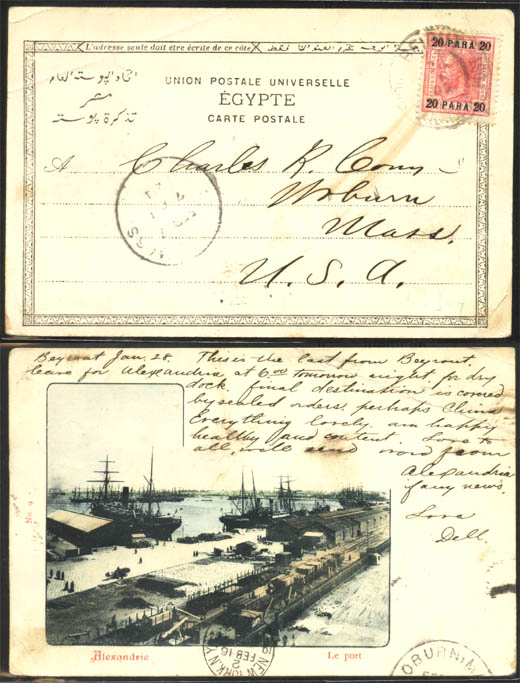 L'adresse seule doit être écrite de ce côté
20 PARA 20
20 PARA 20
اتحاد البوسته العام
مصر
تذكرة بوسته
UNION POSTALE UNIVERSELLE
ÉGYPTE
CARTE POSTALE
A
Charles R. Conn
Woburn
Mass.
U.S.A.
MASS
Beyrout Jan. 28. This is the last from Beyrout.
leave for Alexandria at 6.00 tomorrow night for dry
dock. final destination is covered
by sealed orders, perhaps China
Everything lovely, am happy
healthy and content. Love to
all, will send word from
Alexandria
if any news.
Love
Dell.
No.
Alexandrie
Le port
NEW YORK, N.Y.
FEB 16
OBURN, M